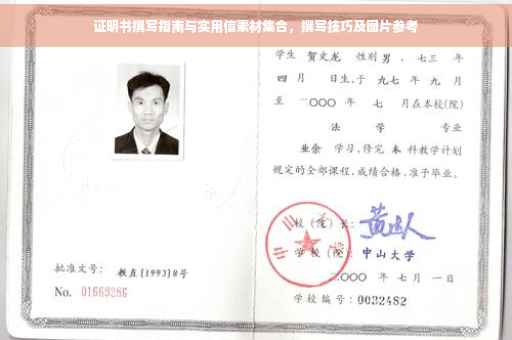 证明书撰写指南与实用信素材集合，撰写技巧及图片参考
学生 贺文龙 性别 男 、七三 年
四 月 日生,于 九七 年 九 月
至 二〇〇〇 年 七 月在本校(院)
法 学 专业
业余 学习,修完 本 科教学计划
规定的全部课程,成绩合格,准予毕业。
校(院)长:
中山大学
学校(院): 中山大学
二〇〇〇 年 七 月 一 日
批准文号: 教直[1993]8号
No. 01669286
学校编号: 0032482